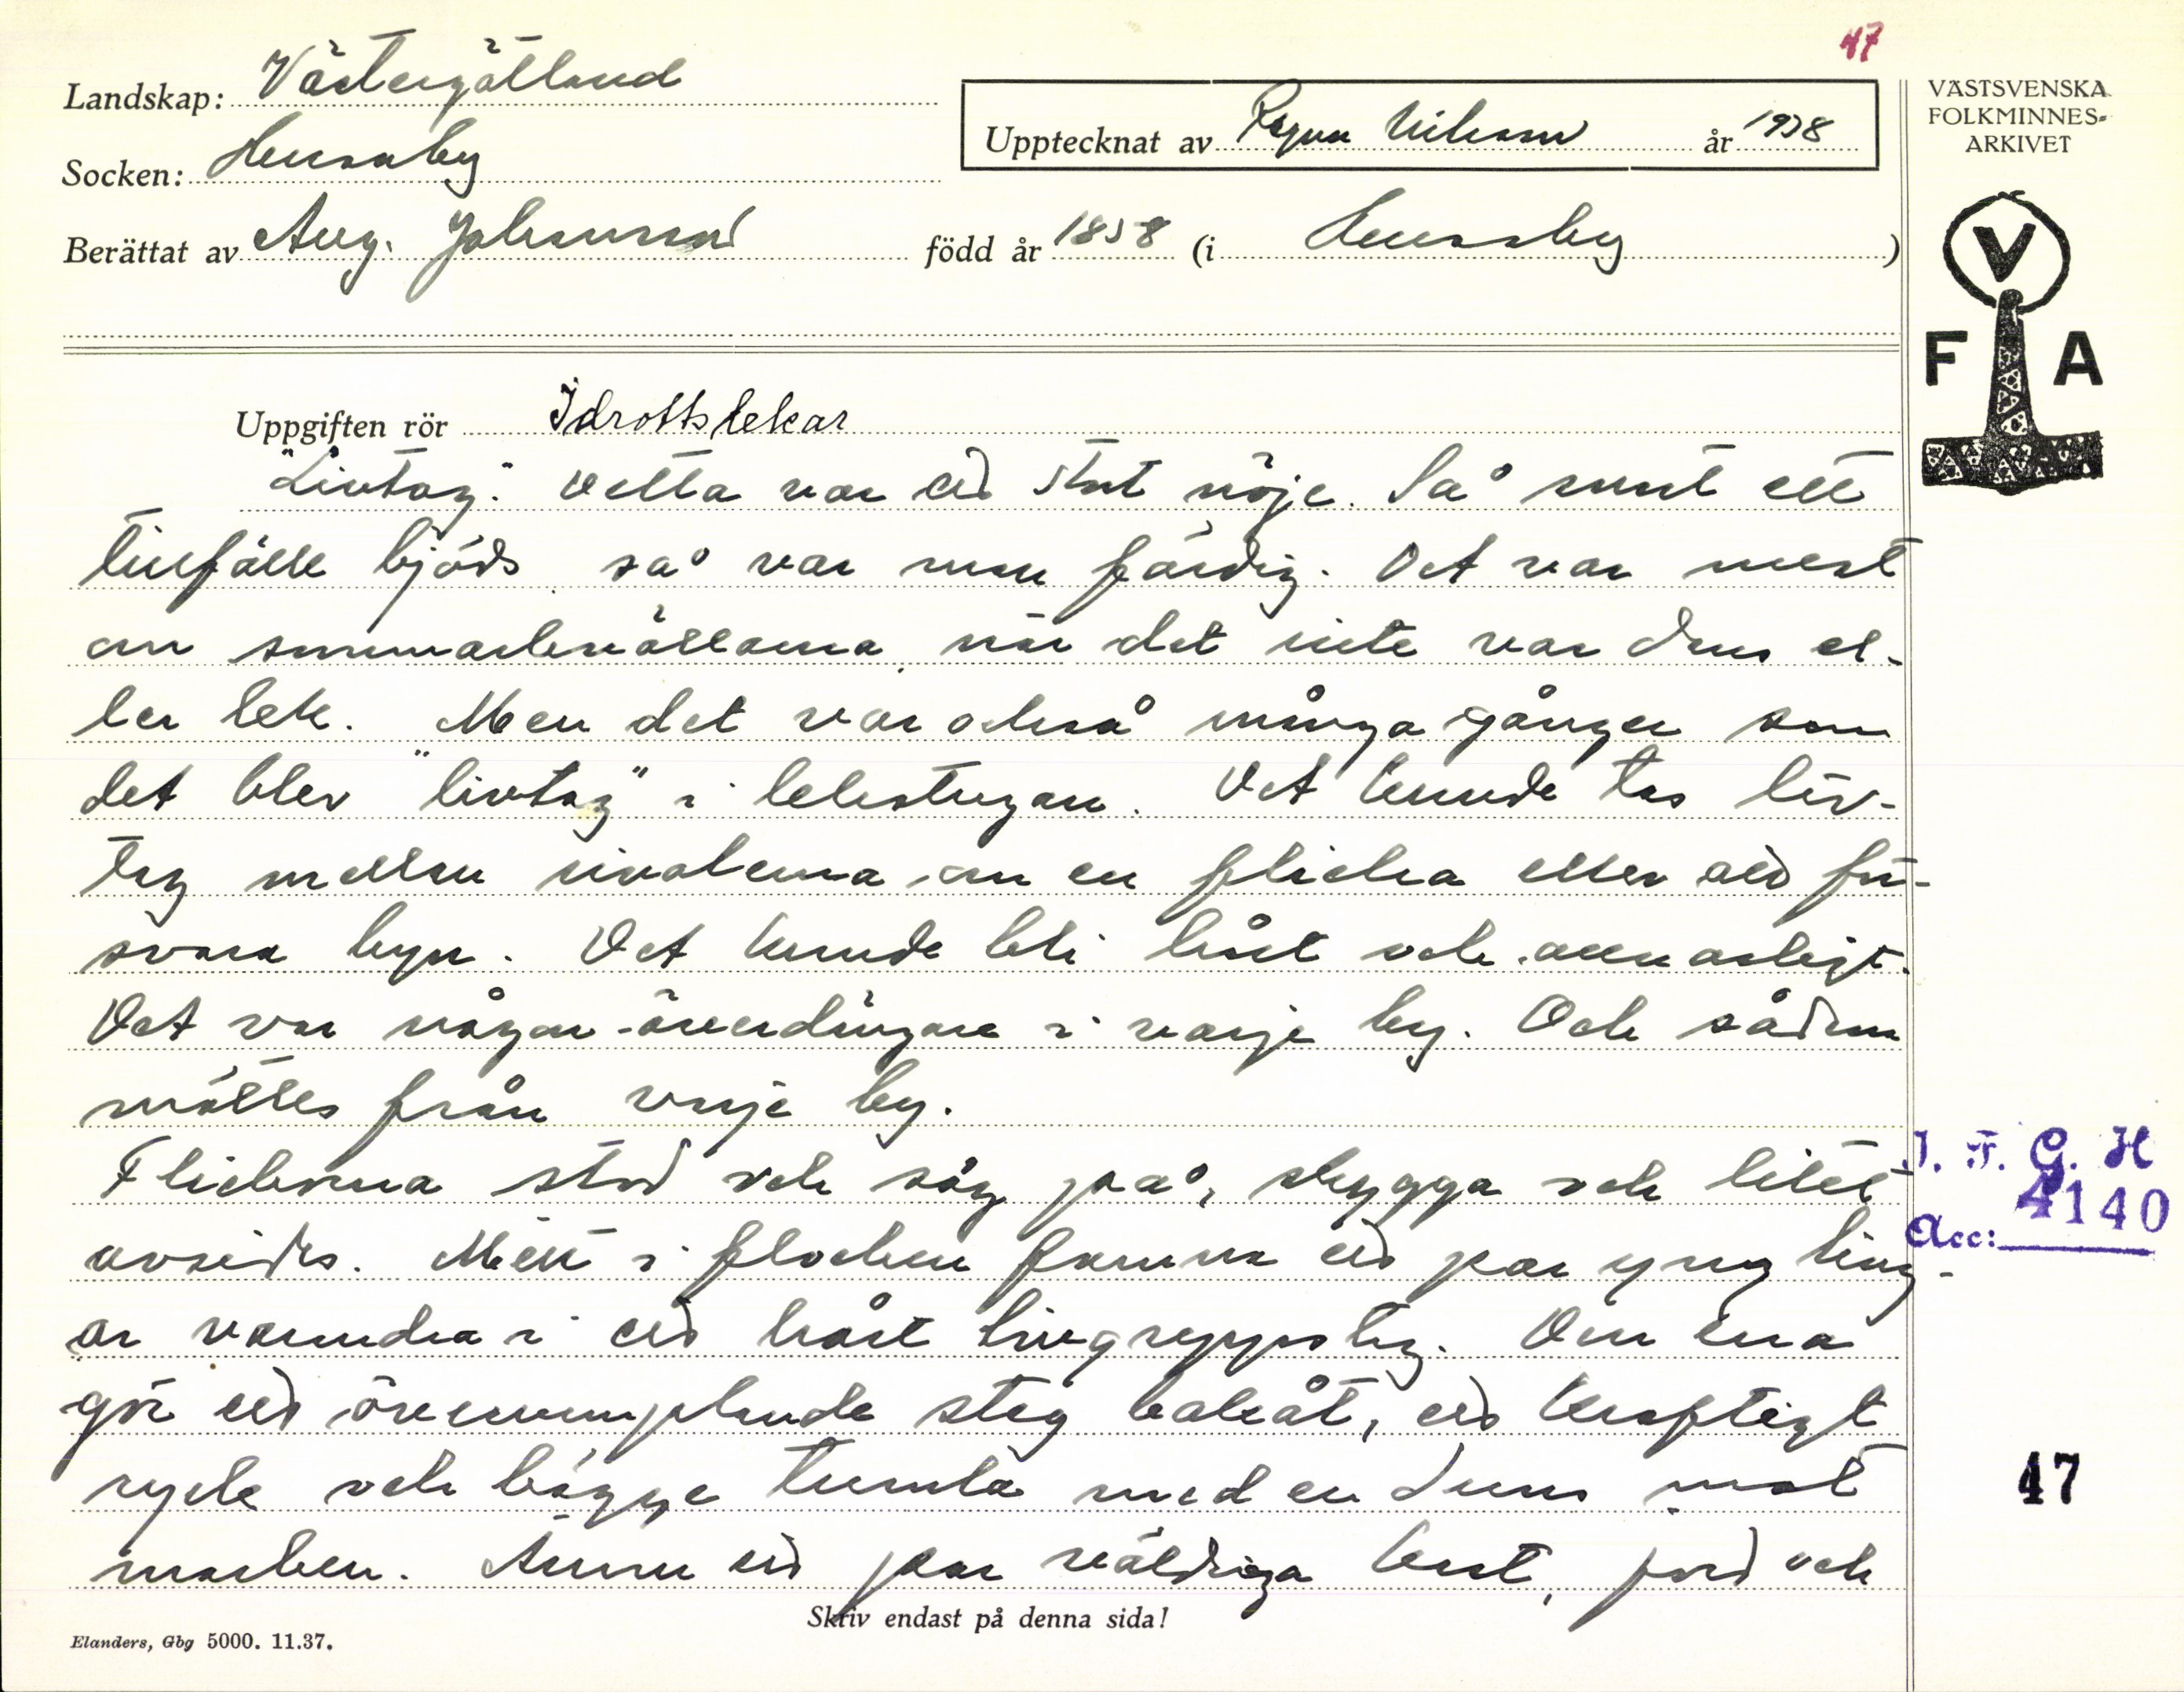 47
Landskap: Västergötland
Socken: Husaby
Berättat av Aug. Johansson född år 1858 (i Husaby)
Upptecknat av Ragnar Nilsson år 1938
VÄSTSVENSKA
FOLKMINNES-
ARKIVET
V
F A
Uppgiften rör Idrottslekar
"Livtag". Detta var ett stort nöje. Så snart ett
tillfälle bjöds så var man färdig. Det var mest
om sommarkvällarna när det inte var dans el-
ler lek. Men det var också många gånger som
det blev "livtag" i lekstugan. Det kunde tas liv-
tag mellan rivalerna om en flicka eller att för-
svara byn. Det kunde bli hårt och allvarligt.
Det var någon överdängare i varje by. Och sådana
möttes från varje by.
Flickorna stod och såg på, skygga och litet
avsides. Mitt i flocken famna ett par yngling-
ar varandra i ett hårt livgreppstag. Den ena
gör ett överrumplande steg bakåt, ett kraftigt
ryck och bägge tumla med en duns mot
marken. Ännu ett par väldiga kast, jord och
Skriv endast på denna sida!
Elanders, Gbg 5000. 11.37.
I. F. G. H
4140
Acc:
47